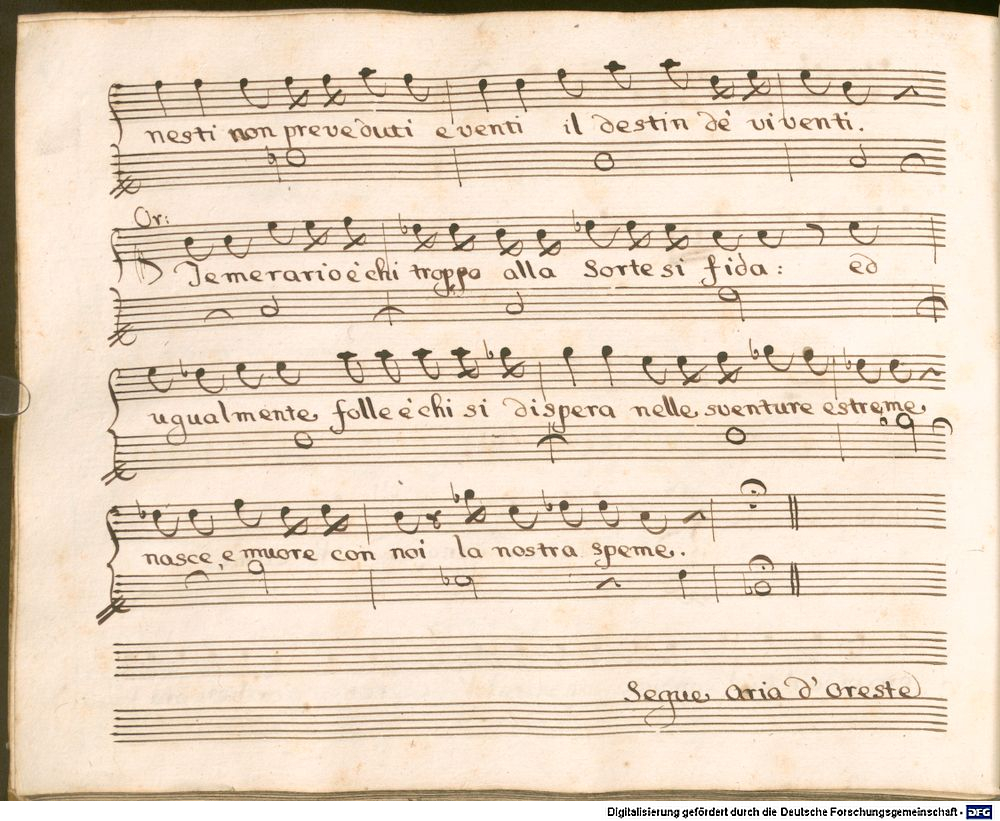 nesti non preveduti eventi il destin de' viventi.
Or:
Temerario è chi troppo alla Sorte si fida: ed
ugualmente folle è chi si dispera nelle sventure estreme,
nasce, e muore con noi la nostra speme.
Segue Aria d'Oreste
Digitalisierung gefördert durch die Deutsche Forschungsgemeinschaft - DFG